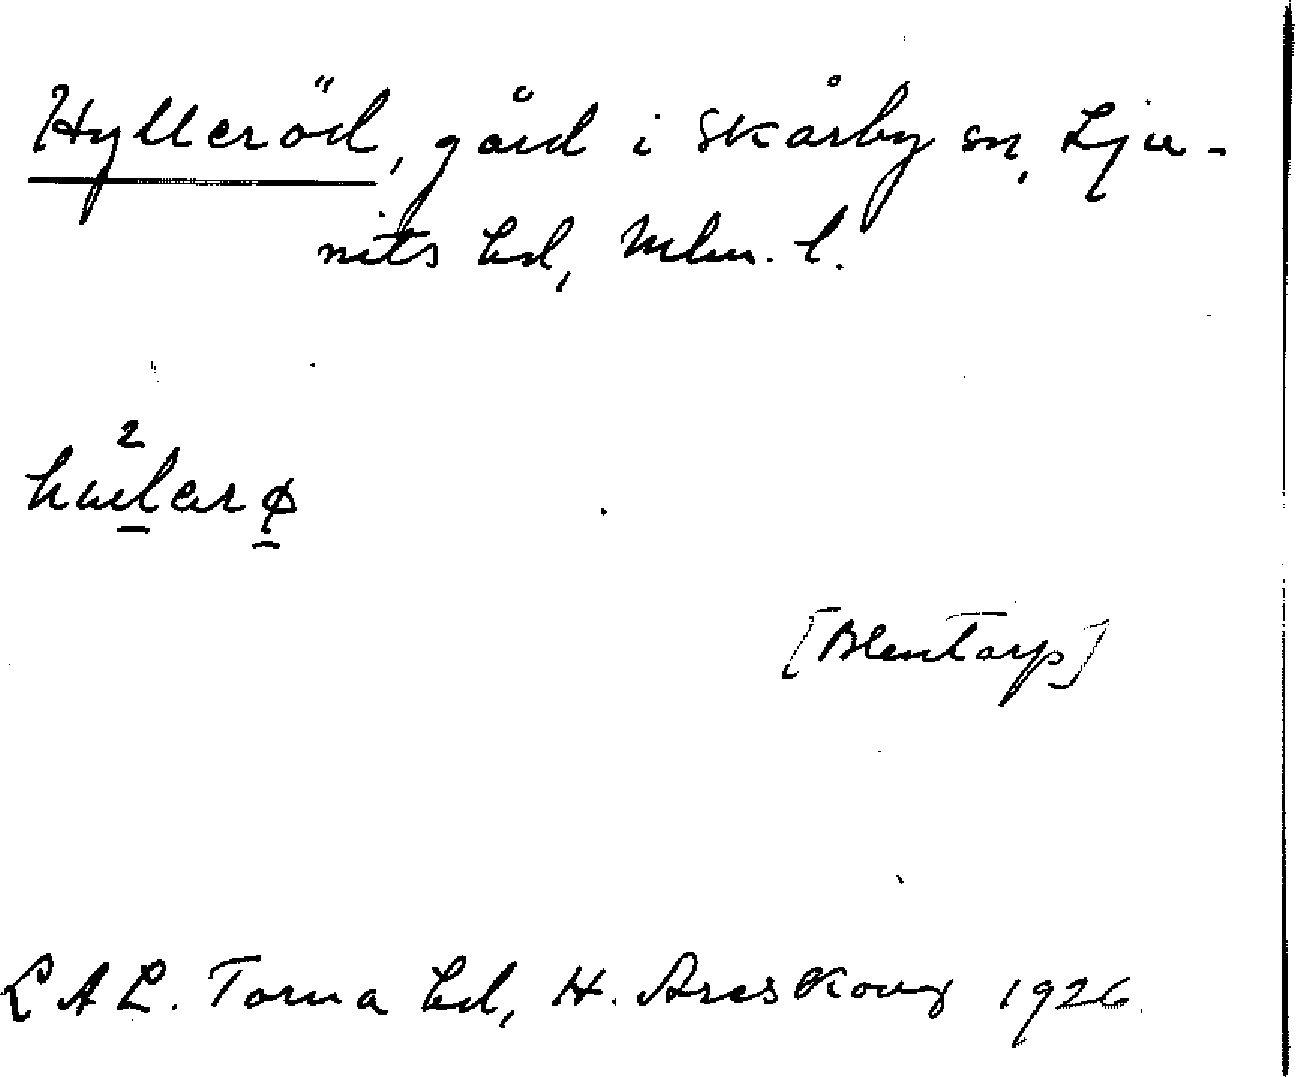 Hylleröd, gård i Skårby sn, Lju-
nits hd, Mlm. l.
[Blentarp]
LAL. Torna hd, H. Areskoug 1926